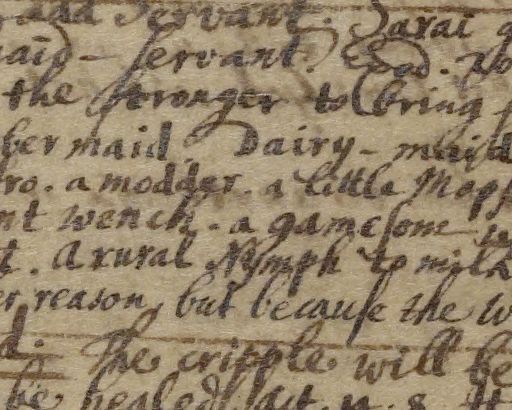 and Servant. Sarai g
maid-servant. Exod. No
the stronger to bring f
bermaid Dairy-maid
ro. a modder. a little Mops
nt wench. a gamesome w
t. A rural Nymph to milk
er reason, but because the w
d. The cripple will be
be healed. Act. 8